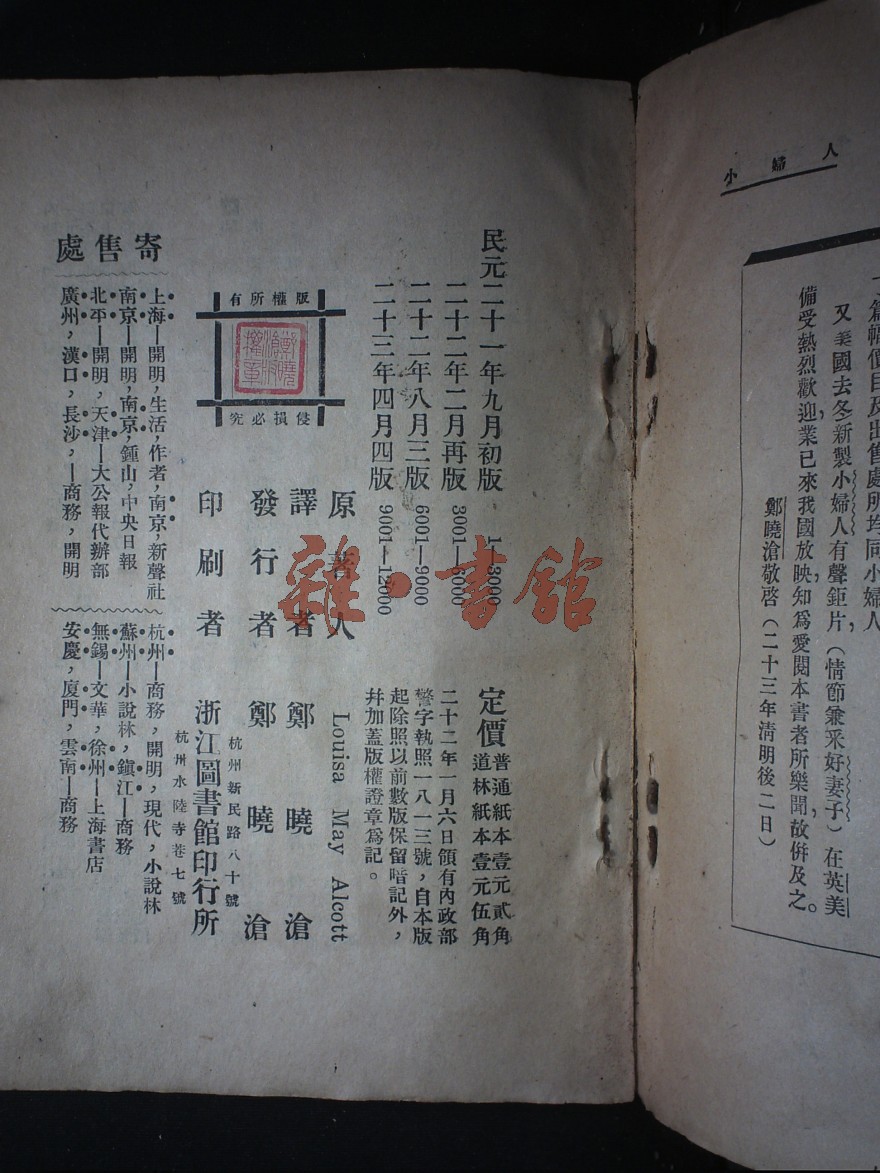 小婦人
下篇幅價目及出售處所均同小婦人
又美國去冬新製小婦人有聲鉅片，（情節兼采好妻子）在英美
備受熱烈歡迎，業已來我國放映，知爲愛閱本書者所樂聞，故倂及之。
鄭曉滄敬啓（二十三年清明後二日）
民元二十一年九月初版 1—3000
二十二年二月再版 3001—6000
二十二年八月三版 6001—9000
二十三年四月四版 9001—12000
定價 普通紙本壹元貳角
道林紙本壹元伍角
二十二年一月六日領有內政部
警字執照一八一三號，自本版
起除照以前數版保留暗記外，
幷加蓋版權證章爲記。
版權所有
鄭曉滄版權章
侵損必究
原著人 Louisa May Alcott
譯者 鄭曉滄
發行者 鄭曉滄
杭州新民路八十號
印刷者 浙江圖書館印行所
杭州水陸寺巷七號
寄售處
上海—開明，生活，作者，南京，新聲社
南京—開明，南京，鍾山，中央日報
北平—開明，天津—大公報代辦部
廣州，漢口，長沙，—商務，開明
杭州—商務，開明，現代，小說林
蘇州—小說林，鎮江—商務
無錫—文華，徐州—上海書店
安慶，廈門，雲南—商務
雜·書館